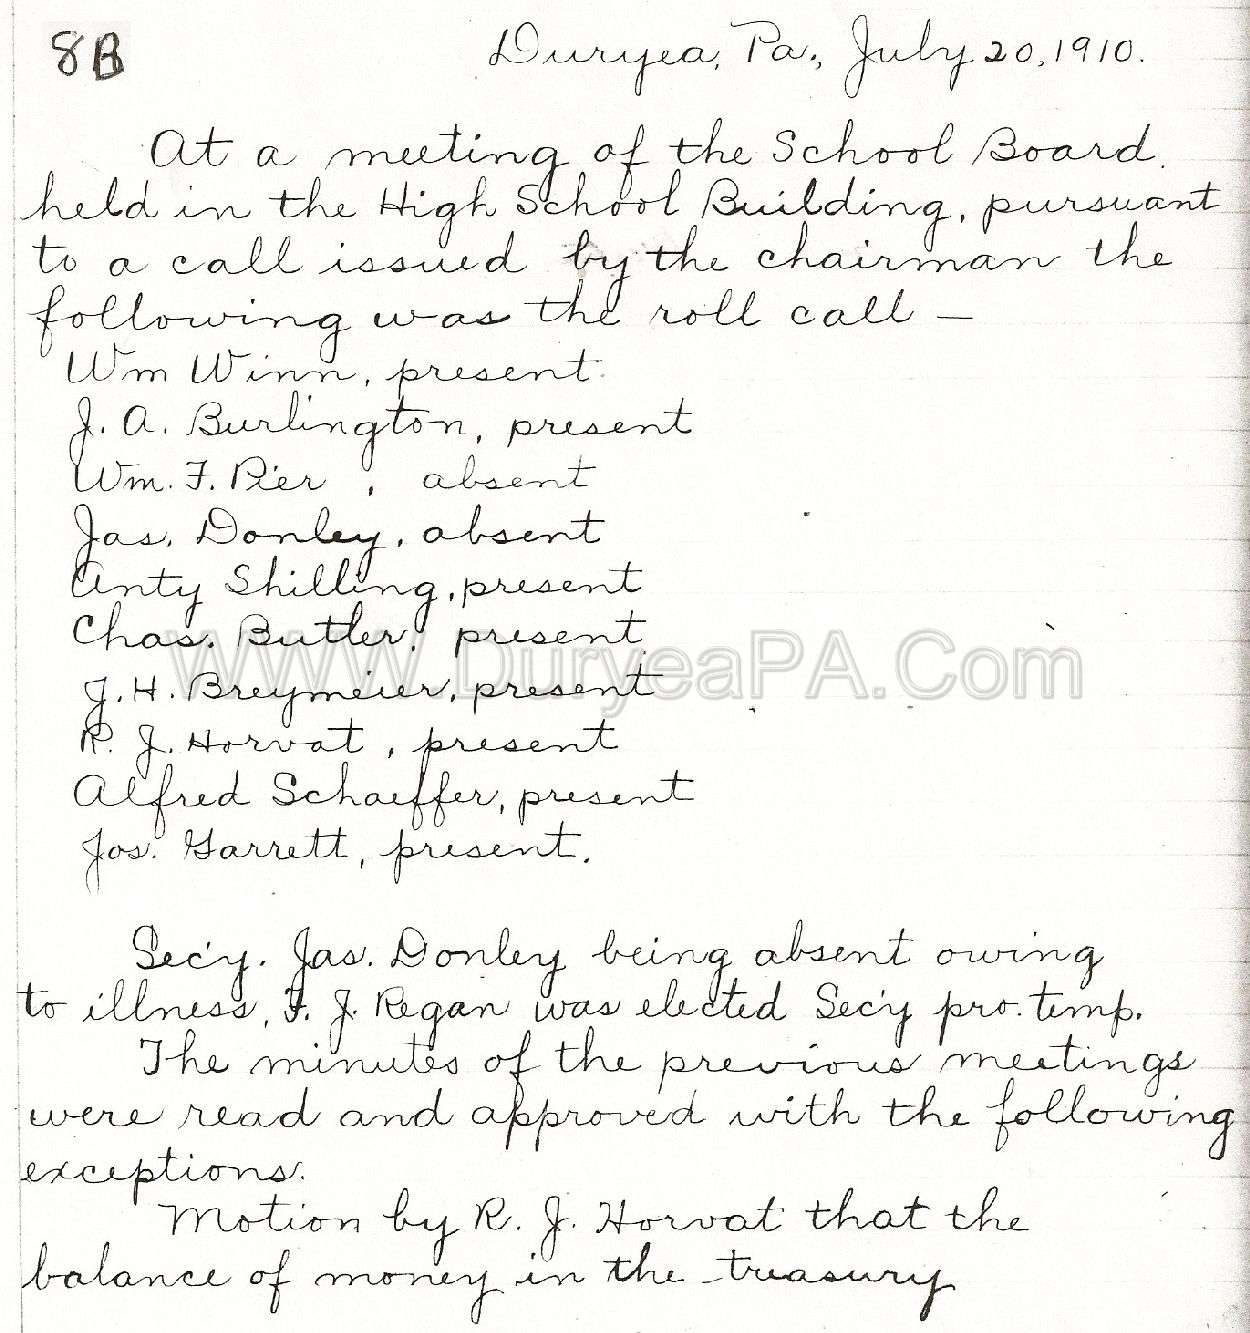 8B
Duryea, Pa., July 20, 1910.
At a meeting of the School Board
held in the High School Building, pursuant
to a call issued by the chairman the
following was the roll call —
Wm Winn, present.
J. A. Burlington, present
Wm. F. Pier, absent
Jas. Donley, absent
Anty Shilling, present
Chas. Butler, present
WWW.DuryeaPA.Com
J. H. Breymeier, present
R. J. Horvat, present
Alfred Schaeffer, present
Jos. Garrett, present.
Sec'y. Jas. Donley being absent owing
to illness, F. J. Regan was elected Sec'y pro. temp.
The minutes of the previous meetings
were read and approved with the following
exceptions.
Motion by R. J. Horvat that the
balance of money in the treasury